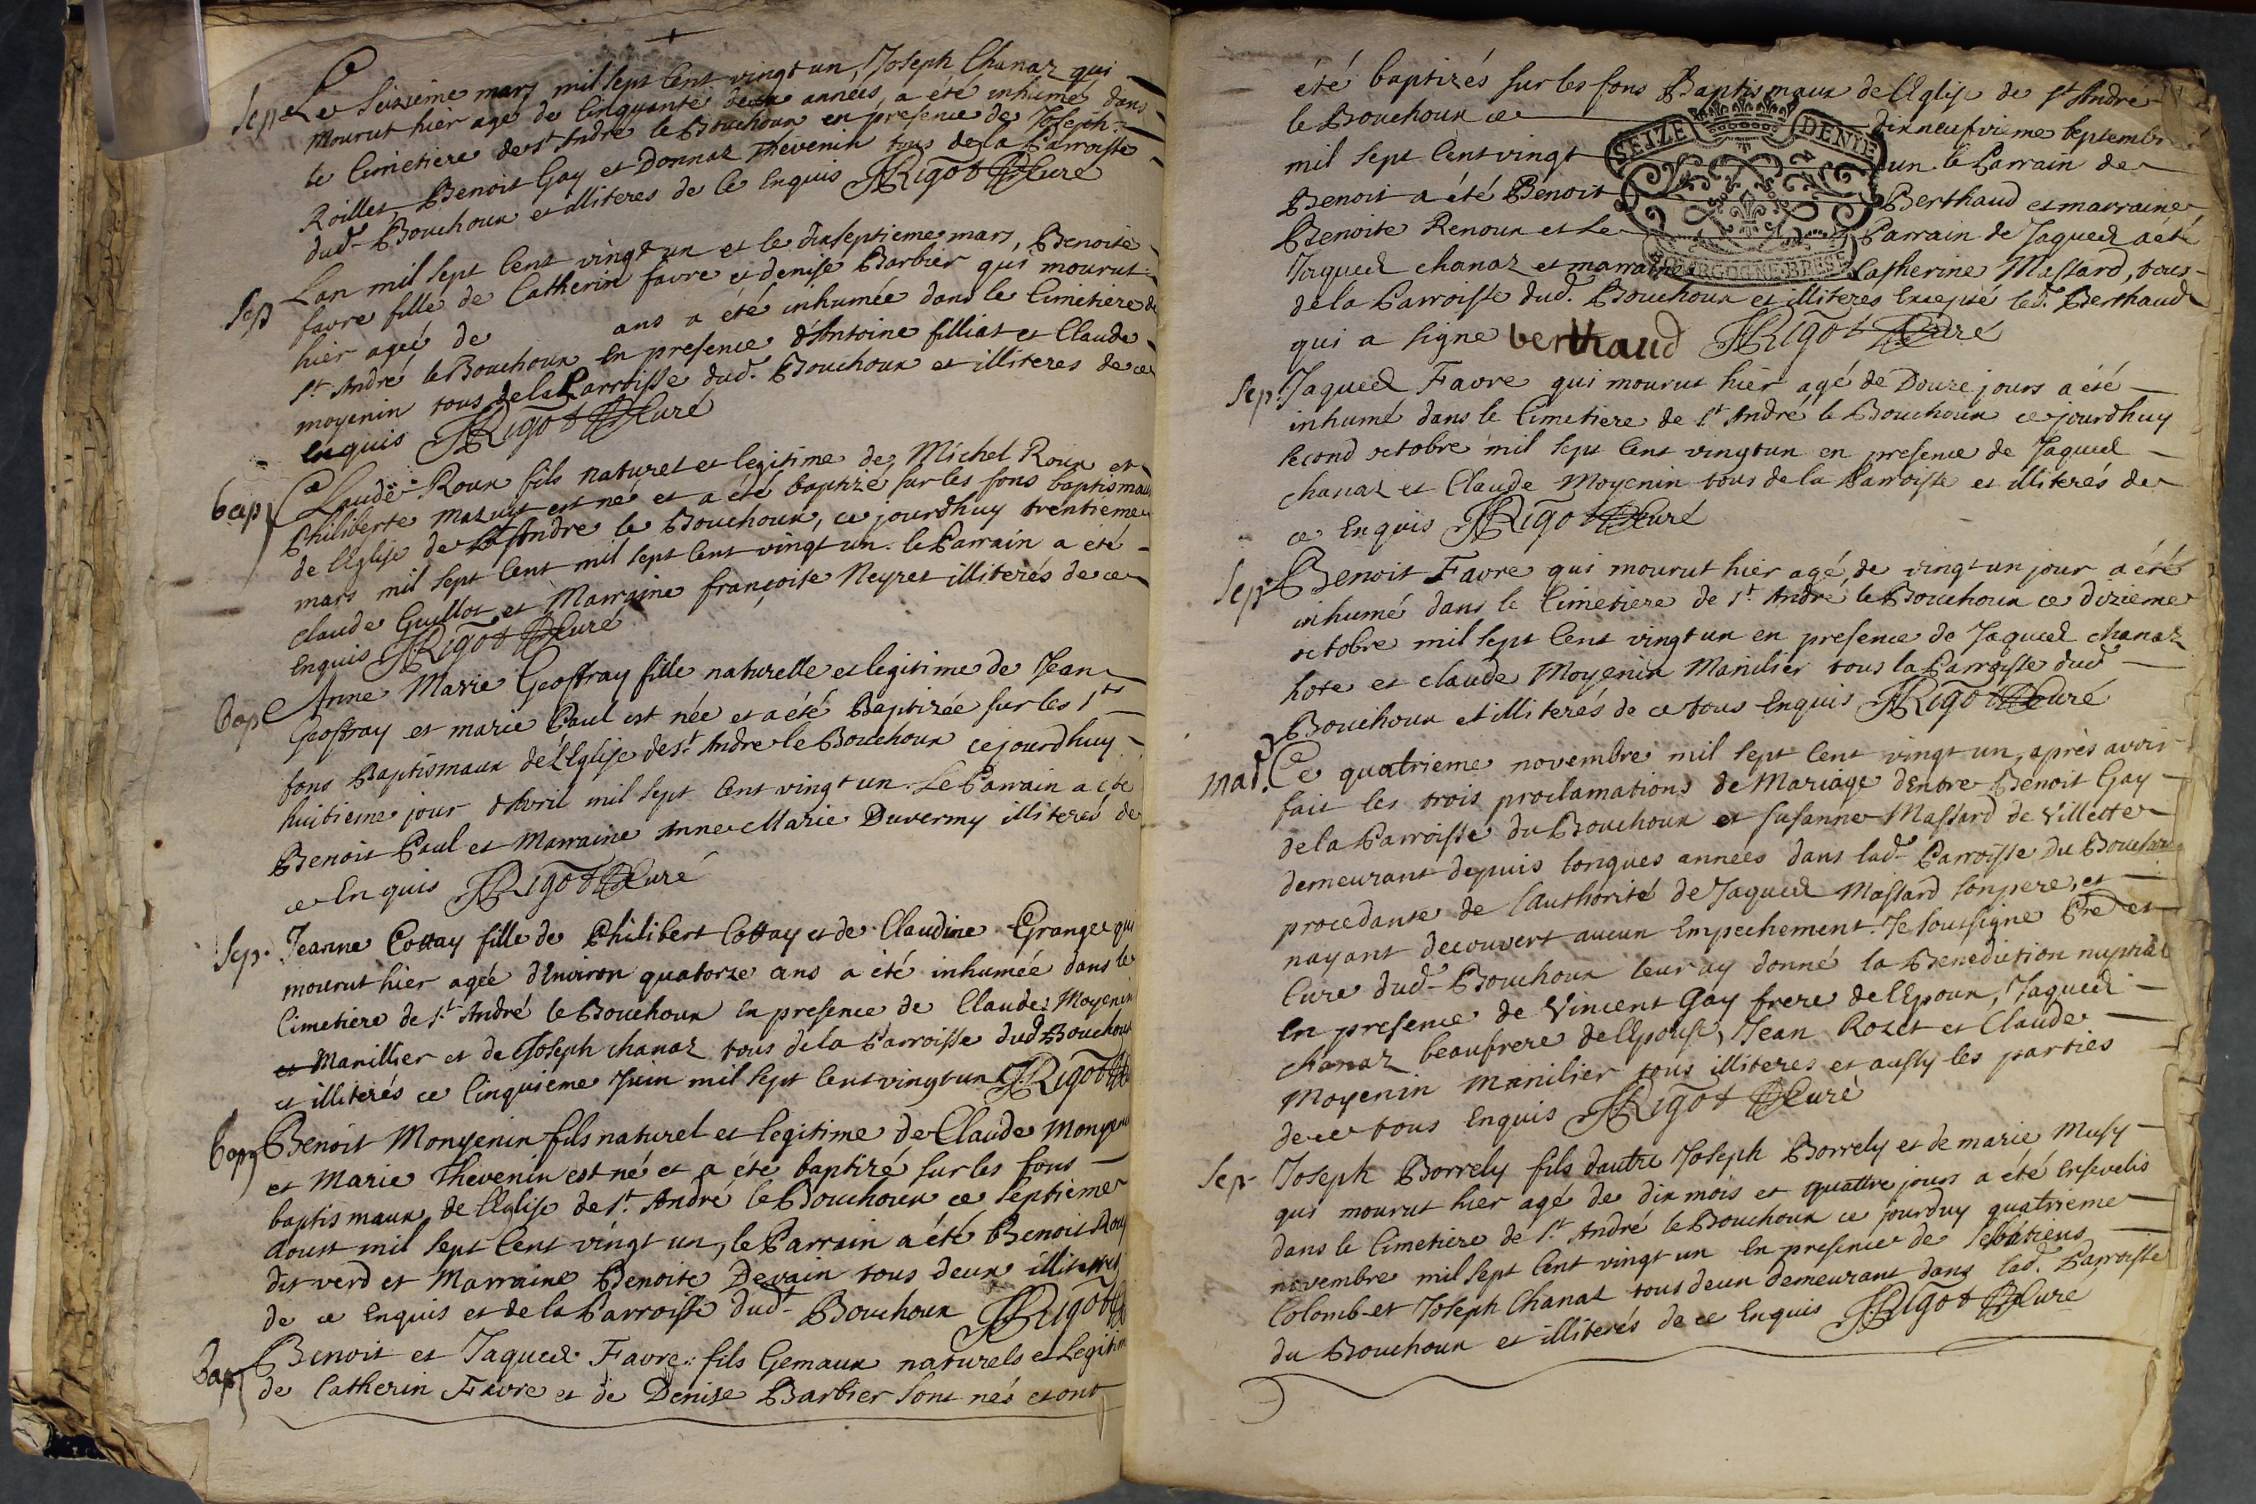 Sep. Le Seizieme mars mil sept cent vingt un, Joseph Chanaz qui
mourut hier agé de cinquante deux années, a été inhumé dans
le cimetiere de st André le Bouchoux en presence de Joseph
Roillet, Benoit Gay et Donnaz Thevenin tous de la Parroisse
dud. Bouchoux et illiteres de ce Enquis JRigot Curé
Sep Lan mil sept cent vingt un et le dixseptieme mars, Benoite
favre fille de Catherin favre et denise Barbier qui mourut
hier agée de ans a été inhumée dans le cimetiere de
st. André le Bouchoux en presence d'Antoine filliat et Claude
moyenin tous de la Parroisse dud. Bouchoux et illiteres de ce
enquis JRigot Curé
bap Claude Roux fils naturel et legitime de Michel Roux et
Philiberte mazuit est né et a été baptizé sur les fons baptismaux
de l'Eglise de st Andre le Bouchoux, ce jourdhuy trentieme
mars mil sept cent mil sept cent vingt un. le Parrain a été
claude Guillot et Marraine françoise Neyret illiterés de ce
Enquis JRigot Curé
Bap Anne Marie Geoffray fille naturelle et legitime de Jean
Geoffray et marie Paul est née et a été Baptizée sur les sts
fons Baptismaux de l'Eglise de st. Andre le Bouchoux ce jourdhuy
huitieme jour d'Avril mil sept cent vingt un. Le Parrain a été
Benoit Paul et Marraine Anne Marie Duvermy illiterés de
ce Enquis JRigot Curé
Sep. Jeanne Cottay fille de Philibert Cottay et de Claudine Grange qui
mourut hier agée d'Environ quatorze ans a été inhumée dans le
Cimetiere de st. André le Bouchoux en presence de Claude Moyenin
et Manillier et de Joseph chanaz tous de la Parroisse dud Bouchoux
et illiterés ce Cinquieme Juin mil sept cent vingt un JRigot
bap Benoit Monyenin fils naturel et legitime de Claude Monyenin
et Marie Thevenin est né et a été baptizé sur les fons
baptismaux de l'Eglise de st. André le Bouchoux ce septieme
doust mil sept cent vingt un, le Parrain a été Benoit Roux
dit verd et Marraine Benoite Devain tous deux illiteres
de ce Enquis et de la Parroisse dud. Bouchoux JRigot
Bap Benoit et Jaques Favre fils Gemaux naturels et Legitimes
de Catherin Favre et de Denise Barbier sont nés et ont
été baptizés sur les fons Baptismaux de l'Eglise de st. André
le Bouchoux ce dixneufvieme septembre
mil sept cent vingt un le Parrain de
Benoit a été Benoit Berthaud et marraine
Benoite Renoux et Le Parrain de Jaques a été
Jaques chanaz et marraine Catherine Massard, tous
de la Parroisse dud. Bouchoux et illiteres Excepté led. Berthaud
qui a signe berthaud JRigot Curé
SEIZE DENIE
BOURGOGNE BRESSE
Sep. Jaques Favre qui mourut hier agé de Douze jours a été
inhumé dans le Cimetiere de st. André le Bouchoux ce jourdhuy
second octobre mil sept cent vingt un en presence de Jaques
chanaz et Claude Moyenin tous de la Parroisse et illiterés de
ce Enquis JRigot Curé
Sep Benoit Favre qui mourut hier agé de vingt un jour a été
inhumé dans le Cimetiere de st. André le Bouchoux ce dizieme
octobre mil sept cent vingt un en presence de Jaques chanaz
hote et claude Moyenin Manilier tous la Parroisse dud
Bouchoux et illiterés de ce tous Enquis JRigot Curé
mad. Ce quatrieme novembre mil sept cent vingt un, après avoir
fait les trois proclamations de Mariage d'Entre Benoit Gay
de la Parroisse du Bouchoux et Susanne Massard de Villette
demeurant depuis longues années dans lad. Parroisse Du Bouchoux
procedante de l'authorité de Jaques Massard son pere, et
nayant decouvert aucun Empechement. Je soussigne Pre et
Cure dud. Bouchoux leur ay donné la Benediction nuptiale
En presence de Vincent Gay frere de l'Epoux, Jaques
chanaz beaufrere de l'Epouse, Jean Rozet et Claude
Moyenin manilier tous illiteres et aussy les parties
de ce tous Enquis JRigot Curé
Sep. Joseph Borrely fils dautre Joseph Borrely et de marie Musy
qui mourut hier agé de dix mois et quattre jours a été Ensevelis
dans le Cimetiere de st. André le Bouchoux ce jourduy quatrieme
novembre mil sept cent vingt un En presence de Sebatiens
Colomb et Joseph Chanaz tous deux demeurant dans lad. Parroisse
du Bouchoux et illiterés de ce Enquis JRigot Curé